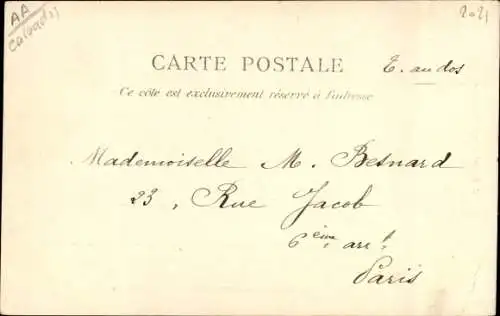 AA
Calvados
2021
CARTE POSTALE
T. au dos
Ce côté est exclusivement réservé à l'adresse
Mademoiselle M. Besnard
23, Rue Jacob
6ème arrt
Paris